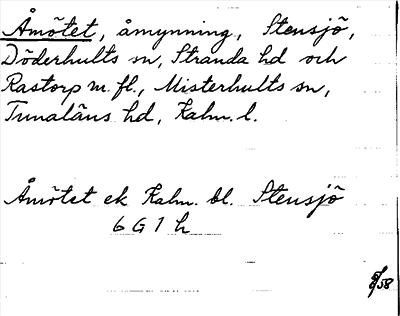 Åmötet, åmynning, Stensjö,
Döderhults sn, Stranda hd och
Rastorp m. fl., Misterhults sn,
Tunaläns hd, Kalm. l.
Åmötet ek Kalm. bl. Stensjö
6 G 1 h